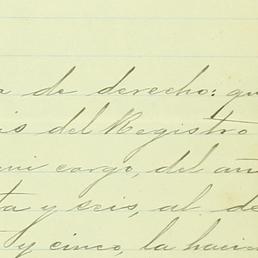 a de derecho: qu
is del Registro
mi cargo, del añ
ta y seis, al de
y cinco, la hacie